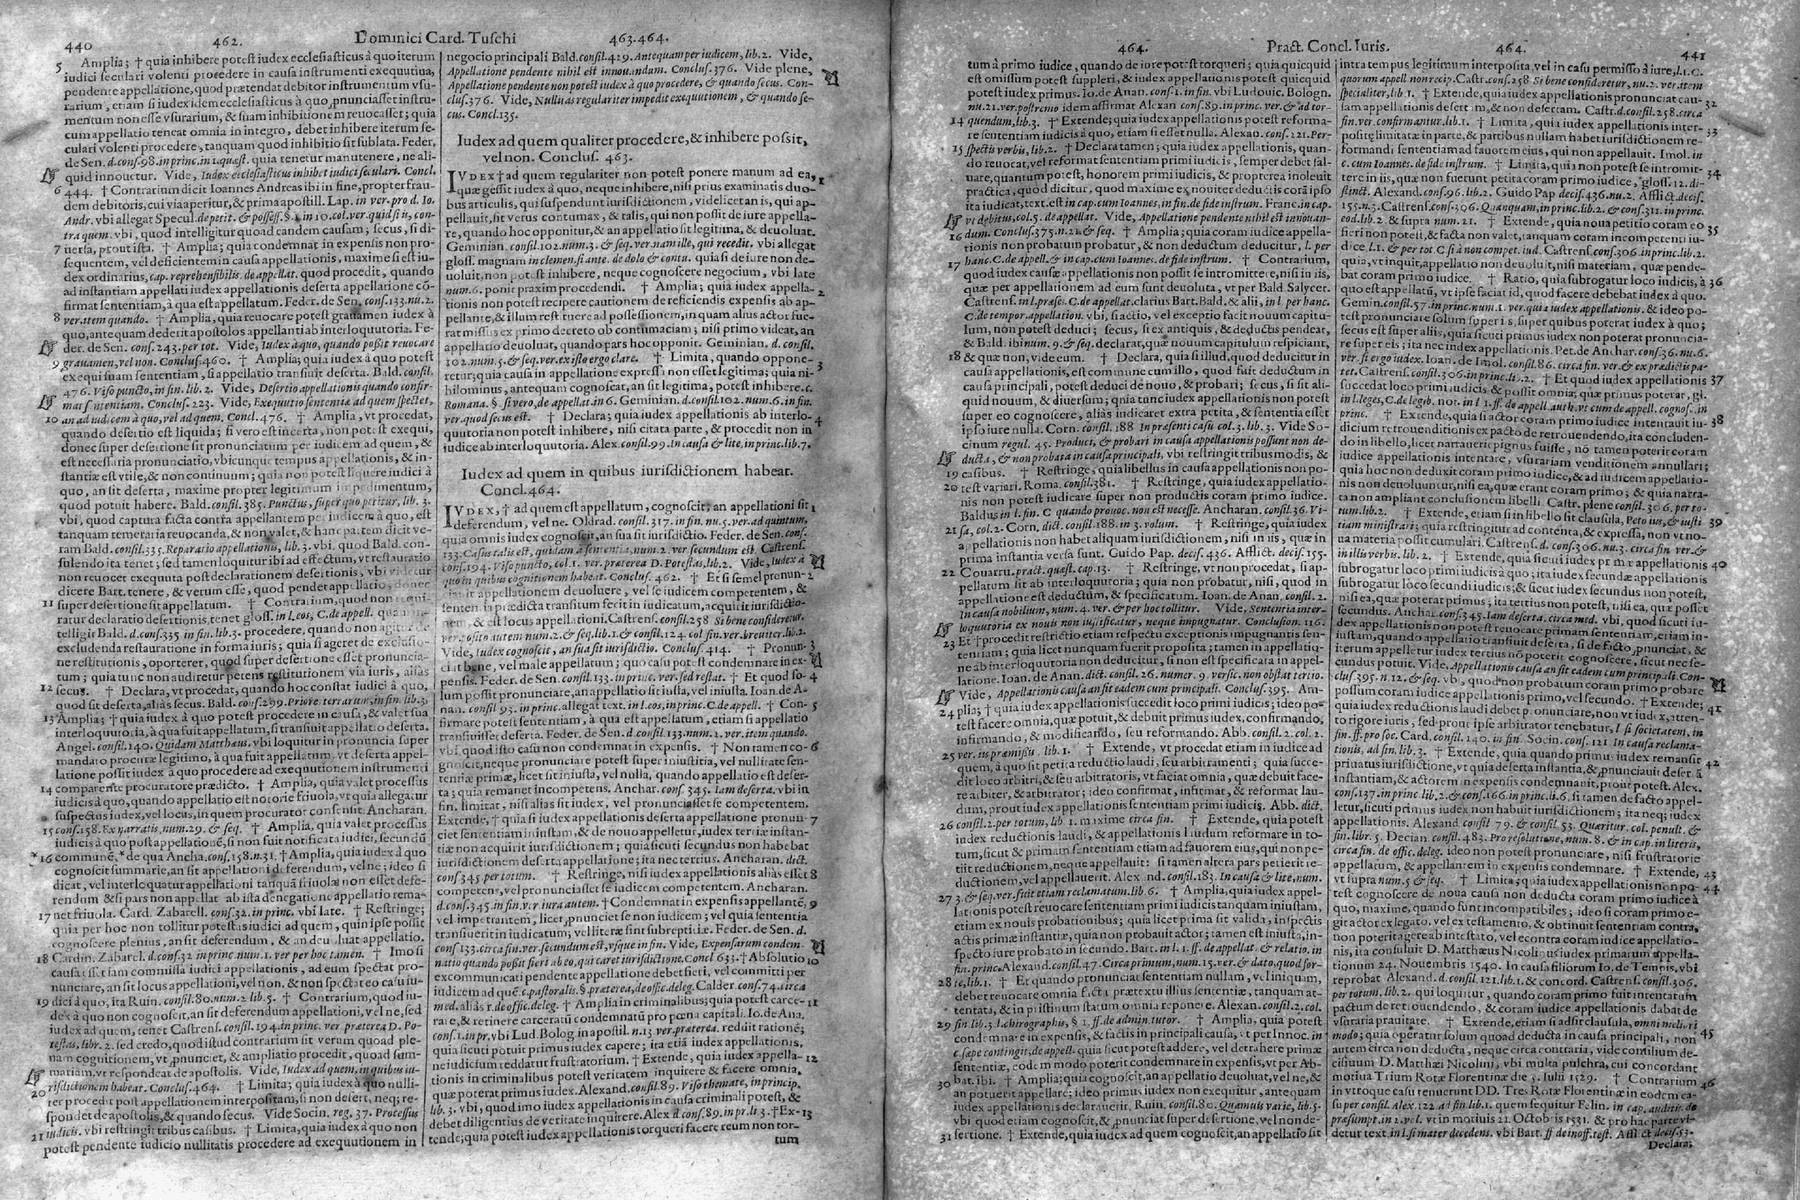 440
462.
Dominici Card. Tuschi
463.464.
5 Amplia; † quia inhibere potest iudex ecclesiasticus à quo iterum
iudici seculari volenti procedere in causa instrumenti exequutiua,
pendente appellatione, quod prætendat debitor instrumentum vsu-
rarium, etiam si iudex idem ecclesiasticus à quo, pnunciasset instru-
mentum non esse vsurarium, & suam inhibitionem reuocasset; quia
cum appellatio teneat omnia in integro, debet inhibere iterum se-
culari volenti procedere, tanquam quod inhibitio sit sublata. Feder.
de Sen. d. cons. 98. in princ. in 1. quæst. quia tenetur manutenere, ne ali-
quid innouetur. Vide, Iudex ecclesiasticus inhibet iudici seculari. Concl.
6 444. † Contrarium dicit Ioannes Andreas ibi in fine, propter frau-
dem debitoris, cui via aperitur, & prima apostill. Lap. in ver. pro d. Io.
7 uersa, prout ista. † Amplia; quia condemnat in expensis non pro-
sequentem, vel deficientem in causa appellationis, maxime si est iu-
dex ordinarius, cap. reprehensibilis. de appellat. quod procedit, quando
ad instantiam appellati iudex appellationis deserta appellatione cō-
firmat sententiam, à qua est appellatum. Feder. de Sen. cons. 133. nu. 2.
8 ver. item quando. † Amplia, quia reuocare potest grauamen iudex à
quo, antequam dederit apostolos appellanti ab interloquutoria. Fe-
der. de Sen. cons. 243. per tot. Vide, Iudex à quo, quando possit reuocare
9 grauamen, vel non. Conclus. 460. † Amplia; quia iudex à quo potest
exequi suam sententiam, si appellatio transiuit deserta. Bald. cons.
476. Viso puncto, in fin. lib. 2. Vide, Desertio appellationis quando confir-
mat sententiam. Conclus. 223. Vide, Exequutio sententiæ ad quem spectet,
10 an ad iudicem à quo, vel ad quem. Concl. 476. † Amplia, vt procedat,
quando desertio est liquida; si vero est incerta, non potest exequi,
donec super desertione sit pronunciatum per iudicem ad quem, &
est necessaria pronunciatio, vbicunque tempus appellationis, & in-
stantiæ est vtile, & non continuum; quia non potest liquere iudici à
quo, an sit deserta, maxime propter legitimum impedimentum,
quod potuit habere. Bald. cons. 385. Punctus, super quo petitur, lib. 3.
vbi, quod captura facta contra appellantem per iudicem à quo, est
tanquam temeraria reuocanda, & non valet, & hanc partem dicit ve-
ram Bald. cons. 335. Reparatio appellationis, lib. 3. vbi, quod Bald. con-
sulendo ita tenet; sed tamen loquitur ibi ad effectum, vt restauratio
non reuocet exequuta post declarationem desertionis, vbi videtur
dicere Bart. tenere, & verum esse, quod pendet appellatio, donec
11 super desertione sit appellatum. † Contrarium, quod non requi-
ratur declaratio desertionis, tenet gloss. in l. eos, C. de appell.
telligit Bald. d. cons. 335 in fin. lib. 3. procedere, quando non agitur de
excludenda restauratione in forma iuris; quia si ageret de exclusio-
ne restitutionis, oporteret, quod super desertione esset pronuncia-
tum; quia tunc non auditetur petens restitutionem via iuris, aliàs
12 secus. † Declara, vt procedat, quando hoc constat iudici à quo,
quod sit deserta, aliàs secus. Bald. cons. 299. Priore tertarum, in fin. lib. 3.
13 Amplia; † quia iudex à quo potest procedere in causa, & valet sua
interloquutoria, à qua fuit appellatum, si transiuit appellatio deserta.
Angel. consil. 140. Quidam Matthæus. vbi loquitur in pronuncia super
mandato procuræ legitimo, à qua fuit appellatum. vt deserta appel-
latione possit iudex à quo procedere ad exequutionem instrumenti
14 comparente procuratore prædicto. † Amplia, quia valet processus
iudicis à quo, quando appellatio est notorie friuola, vt quia allegatur
suspectus iudex, vel locus, in quem procurator consensit. Ancharan.
15 cons. 158. Ex narratis, num. 29. & seq. † Amplia, quia valet processus
iudicis à quo post appellationē, si non fuit notificata iudici, secundū
*16 communē, * de qua Ancha. cons. 158. n. 31. † Amplia, quia iudex à quo
cognoscit summarie, an sit appellationi deferendum, vel ne; ideo si
dicat, vel interloquatur appellationi tanquā friuolæ non esset defe-
rendum & si pars non appellat ab ista denegatione appellatio rema-
17 net friuola. Card. Zabarell. cons. 32. in princ. vbi late. † Restringe;
quia per hoc non tollitur potestas iudici ad quem, quin ipse possit
cognoscere plenius, an sit deferendum, & an deuoluat appellatio.
18 Cardin. Zabarel. d. cons. 32 in princ. num. 1. ver. per hoc tamen. † Imo si
causa esset iam commissa iudici appellationis, ad eum spectat pro-
nunciare, an sit locus appellationi, vel non, & non spectat eo casu iu-
19 dici à quo, ita Ruin. consil. 80. num. 2 lib. 5. † Contrarium, quod iu-
dex à quo non cognoscit, an sit deferendum appellationi, vel ne, sed
iudex ad quem, tenet Castrens. consil. 194. in princ. ver. præterea D. Po-
testas, libr. 2. sed credo, quod istud contrarium sit verum quoad ple-
nam cognitionem, vt pnunciet, & ampliatio procedit, quoad sum-
mariam, vt respondeat de apostolis. Vide, Iudex ad quem, in quibus iu-
risdictionem habeat. Conclus. 464. † Limita; quia iudex à quo nulli-
20 ter procedit post appellationem interpositam, si non defert, neq; re-
spondet de apostolis, & quando secus. Vide Socin. reg. 37. Processus
21 iudicis. vbi restringit tribus casibus. † Limita, quia iudex à quo non
potest pendente iudicio nullitatis procedere ad exequutionem in
negocio principali Bald. consil. 429. Antequam per iudicem, lib. 2. Vide,
Appellatione pendente nihil est innouandum. Conclus. 376. Vide plene,
Appellatione pendente non potest iudex à quo procedere, & quando secus. Con-
clus. 376. Vide, Nullitas regulariter impedit exequutionem, & quando se-
cus. Concl. 135.
Iudex ad quem qualiter procedere, & inhibere possit,
vel non. Conclus. 463.
IVDEX † ad quem regulariter non potest ponere manum ad ea, 1
quæ gessit iudex à quo, neque inhibere, nisi prius examinatis duo-
bus articulis, qui suspendunt iurisdictionem, videlicet an is, qui ap-
pellauit, sit verus contumax, & talis, qui non possit de iure appella-
re, quando hoc opponitur, & an appellatio sit legitima, & deuoluat.
Geminian. consil. 102. num. 3. & seq. ver. nam ille, qui recedit. vbi allegat
gloss. magnam in clemen. si ante. de dolo & contu. quia si de iure non de-
uoluit, non potest inhibere, neque cognoscere negocium, vbi late
num. 6. ponit praxim procedendi. † Amplia; quia iudex appella- 2
tionis non potest recipere cautionem de reficiendis expensis ab ap-
pellante, & illum restituere ad possessionem, in quam alius actor fue-
rat missus ex primo decreto ob contumaciam; nisi primo videat, an
appellatio deuoluat, quando pars hoc opponit. Geminian. d. consil.
102. num. 5. & seq. ver. ex isto ergo clare. † Limita, quando oppone- 3
retur; quia causa in appellatione expressa non esset legitima; quia ni-
hilominus, antequam cognoscat, an sit legitima, potest inhibere. c.
Romana. § si vero, de appellat. in 6. Geminian. d. cons. 102. num. 6. in fin.
ver. quod secus est. † Declara; quia iudex appellationis ab interlo- 4
quutoria non potest inhibere, nisi citata parte, & procedit non in
iudice ab interloquutoria. Alex. consil. 99. In causa & lite, in princ. lib. 7.
Iudex ad quem in quibus iurisdictionem habeat.
Concl. 464.
IVDEX, † ad quem est appellatum, cognoscit; an appellationi sit 1
deferendum, vel ne. Oldrad. consil. 317. in fin. nu. 5. ver. ad quintum,
quia omnis iudex cognoscit, an sua sit iurisdictio. Feder. de Sen. cons.
133. Casus talis est, quidam à sententia, num. 2. ver. secundum est. Castrens.
cons. 194. Viso puncto, col. 1. ver. præterea D. Potestas, lib. 2. Vide, Iudex à
quo in quibus cognitionem habeat. Conclus. 462. † Et si semel pronun- 2
ciauit appellationem deuoluere, vel se iudicem competentem, &
sententia prædicta transitum fecit in iudicatum, acquirit iurisdictio-
nem, & est locus appellationi. Castrens. consil. 258 Si bene consideretur,
ver. posito autem num. 2. & seq. lib. 1. & consil. 124. col. fin. ver. breuiter. lib. 2.
Vide, Iudex cognoscit, an sua sit iurisdictio. Conclus. 414. † Pronun- 3
ciat bene, vel male appellatum; quo casu potest condemnare in ex-
pensis. Feder. de Sen. consil. 133. in princ. ver. sed restat. † Et quod so- 4
lum possit pronunciare, an appellatio sit iusta, vel iniusta. Ioan. de A-
nan. consil. 93. in princ. allegat text. in l. eos, in princ. C. de appell. † Con- 5
firmare potest sententiam, à qua est appellatum, etiam si appellatio
transiuisset deserta. Feder. de Sen. d. consil. 133. num. 2. ver. item quando.
vbi quod isto casu non condemnat in expensis. † Non tamen co- 6
gnoscit, neque pronunciare potest super iniustitia, vel nullitate sen-
tentiæ primæ, licet sit iniusta, vel nulla, quando appellatio est deser-
ta; quia remanet incompetens. Anchar. cons. 345. Iam deserta. vbi in
fin. limitat, nisi alias sit iudex, vel pronunciasset se competentem.
Extende, † quia si iudex appellationis deserta appellatione pronun- 7
ciet sententiam iniustam, & de nouo appelletur, iudex tertiæ instan-
tiæ non acquirit iurisdictionem; quia sicuti secundus non habebat
iurisdictionem deserta appellatione; ita nec tertius. Ancharan. dict.
cons 345 per totum. † Restringe, nisi iudex appellationis alias esset 8
competens, vel pronunciasset se iudicem competentem. Ancharan.
d. cons. 345 in fin. ver. iura autem. † Condemnat in expensis appellantē, 9
vel impetrantem, licet pnunciet se non iudicem; vel quia sententia
transiuerit in iudicatum; vel literæ sint subreptitiæ. Feder. de Sen. d.
cons. 133. circa fin. ver. secundum est, vsque in fin. Vide, Expensarum condem-
natio quando possit fieri ab eo, qui caret iurisdictione. Concl 633. † Absolutio 10
excommunicati pendente appellatione debet fieri, vel committi per
iudicem ad quē c. pastoralis. § præterea, de offic. deleg. Calder cons. 74. circa
med. aliàs 1. de offic. deleg. † Amplia in criminalibus; quia potest carce- 11
rare, & retinere carceratū condemnatū pro pœna capitali. Io. de Ana.
cons. 1. in pr. vbi Lud. Bolog. in apostil. n. 13. ver. præterea. reddit rationē;
quia sicuti potuit primus iudex capere; ita etiā iudex appellationis,
ne iudicium reddatur frustratorium. † Extende, quia iudex appella- 12
tionis in criminalibus potest veritatem inquirere & facere omnia,
quæ poterat primus iudex. Alexand. consil. 89. Viso themate, in princip.
lib. 3. vbi, quod imo iudex appellationis in causa criminali potest, &
debet diligentius de veritate inquirere. Alex. d. cons. 89. in pr. li 3. † Ex- 13
tende; quia potest iudex appellationis torqueri facere reum non tor-
tum
464.
Pract. Concl. Iuris.
464.
441
tum à primo iudice, quando de iure potest torqueri; quia quicquid
est omissum potest suppleri, & iudex appellationis potest quicquid
potest iudex primus. Io. de Anan. cons. 1. in fin. vbi Ludouic. Bologn.
nu. 21. ver. postremo idem affirmat Alexan cons. 89. in princ. ver. & ad tor-
14 quendum, lib. 3. † Extende; quia iudex appellationis potest reforma-
re sententiam iudicis à quo, etiam si esset nulla. Alexan. cons. 121. Per-
15 spectis verbis, lib. 2. † Declara tamen; quia iudex appellationis, quan-
do reuocat, vel reformat sententiam primi iudicis, semper debet sal-
uare, quantum potest, honorem primi iudicis, & propterea inoleuit
practica, quod dicitur, quod maxime ex nouiter deductis corā ipso
ita iudicat, text. est in cap. cum Ioannes, in fin. de fide instrum. Franc. in cap.
vt debitus, col. 5. de appellat. Vide, Appellatione pendente nihil est innouan-
16 dum. Conclus. 375. n. 21. & seq. † Amplia; quia coram iudice appella-
tionis non probatum probatur, & non deductum deducitur, l. per
17 hanc. C. de appell. & in cap. cum Ioannes. de fide instrum. † Contrarium,
quod iudex causæ appellationis non possit se intromittere, nisi in iis,
quæ per appellationem ad eum sunt deuoluta, vt per Bald. Salycet.
Castrens. in l. præses. C. de appellat. clarius Bart. Bald. & alii, in l. per hanc.
C. de tempor. appellation. vbi, si actio, vel exceptio facit nouum capitu-
lum, non potest deduci; secus, si ex antiquis, & deductis pendeat,
& Bald. ibi num. 9. & seq. declarat, quæ nouum capitulum respiciant,
18 & quæ non, vide eum. † Declara, quia si illud, quod deducitur in
causa appellationis, est commune cum illo, quod fuit deductum in
causa principali, potest deduci de nouo, & probari; secus, si sit ali-
quid nouum, & diuersum; quia tunc iudex appellationis non potest
super eo cognoscere, aliàs iudicaret extra petita, & sententia esset
ipso iure nulla. Corn. consil. 188 In præsenti casu col. 3. lib. 3. Vide So-
cinum regul. 45. Product, & probari in causa appellationis possunt non de-
ducta, & non probata in causa principali. vbi restringit tribus modis, &
19 casibus. † Restringe, quia libellus in causa appellationis non po-
20 test variari. Roma. consil. 381. † Restringe, quia iudex appellatio-
nis non potest iudicare super non productis coram primo iudice.
Baldus in l. fin. C quando prouoc. non est necesse. Ancharan. consil. 36. Vi-
21 sa, col. 2. Corn. dict. consil. 188. in 3. volum. † Restringe, quia iudex
appellationis non habet aliquam iurisdictionem, nisi in iis, quæ in
prima instantia versa sunt. Guido Pap. decis. 436. Afflict. decis. 155.
22 Couarru. pract. quæst. cap. 13. † Restringe, vt non procedat, si ap-
pellatum sit ab interloquutoria; quia non probatur, nisi, quod in
appellatione est deductum, & specificatum. Ioan. de Anan. consil. 2.
In causa nobilium, num. 4. ver. & per hoc tollitur. Vide, Sententia inter-
loquutoria ex nouis non iustificatur, neque impugnatur. Conclusion. 116.
23 Et † procedit restrictio etiam respectu exceptionis impugnantis sen-
tentiam; quia licet nunquam fuerit proposita; tamen in appellatio-
ne ab interloquutoria non deducitur, si non est specificata in appel-
latione. Ioan. de Anan. dict. consil. 26. numer. 9. versic. non obstat tertio.
Vide, Appellationis causa an sit eadem cum principali. Conclus. 395. Am-
24 plia; † quia iudex appellationis succedit loco primi iudicis; ideo po-
test facere omnia, quæ potuit, & debuit primus iudex, confirmando,
infirmando, & modificando, seu reformando. Abb. consil. 2. col. 2.
25 ver. iis præmissis lib. 1. † Extende, vt procedat etiam in iudice ad
quem, à quo sit petita reductio laudi, seu arbitramenti; quia succe-
dit loco arbitri, & seu arbitratoris, vt faciat omnia, quæ debuit face-
re arbiter, & arbitrator; ideo confirmat, infirmat, & reformat lau-
dum, prout iudex appellationis sententiam primi iudicis. Abb. dict.
26 consil. 2. per totum, lib. 1. maxime circa fin. † Extende, quia potest
iudex reductionis laudi, & appellationis laudum reformare in to-
tum, sicut & primam sententiam etiam ad fauorem eius, qui non pe-
tiit reductionem, neque appellauit: si tamen altera pars petierit re-
ductionem, vel appellauerit. Alexand. cons. 183. In causa & lite, num.
27 3. & seq. ver. fuit etiam reclamatum. lib. 6. † Amplia, quia iudex appel-
lationis potest reuocare sententiam primi iudicis tanquam iniustam,
ex nouis probationibus; quia licet prima sit valida, inspectis
actis primæ instantiæ, quia non probauit actor; tamen est iniusta, in-
specto iure probato in secundo. Bart. in l. 1. ff. de appellat. & relatio. in
fin. princ. Alexand. consil. 47. Circa primum, num. 15. ver. & dato, quod sor-
28 te, lib. 1. † Et quando pronunciat sententiam nullam, vel iniquam,
debet reuocare omnia facta prætextu illius sententiæ, tanquam at-
tentata, & in pristinum statum omnia reponere. Alexan. consil. 2. col.
29 fin. lib. 3. l. chirographis, § 1. ff. de admin. tutor. † Amplia, quia potest
condemnare in expensis, & factis in principali causa, vt per Innoc. in
c. sæpe contingit, de appell. quia sicut potest addere, vel detrahere primæ
sententiæ, eodem modo poterit condemnare in expensis, vt per Ab-
30 bat. ibi. † Amplia; quia cognoscit, an appellatio deuoluat, vel ne, &
an potuerit appellare; ideo si mandat procedi ad vlteriora, videtur
iudex appellationis declarauerit. Ruin. consil. 80. Quamuis varie, lib. 5.
vbi quod etiam cognoscit, & pnunciat super desertione, vel non de-
31 sertione. † Extende, quia iudex ad quem cognoscit, an appellatio sit
intra tempus legitimum interposita, vel in casu permisso à iure, l. 1. C.
quorum appell non recip. Castr. cons. 258 Si bene consideretur, nu. 2. ver. item
specialiter, lib. 1. † Extende, quia iudex appellationis pronunciat cau- 32
sam appellationis desertam, & non desertam. Castr. d. consil. 258. circa
fin. ver. confirmantur, lib. 1. † Limita, quia iudex appellationis inter- 33
positæ, limitatæ in parte, & partibus nullam habet iurisdictionem re-
formandi sententiam ad fauorem eius, qui non appellauit. Imol. in
c. cum Ioannes. de fide instrum. † Limita, quia non potest se intromit- 34
tere in iis, quæ non fuerunt petita coram primo iudice, gloss. 12. di-
stinct. Alexand. cons. 96. lib. 2. Guido Pap decis. 436. nu. 2. Afflict. decis.
155. n. 3. Castrens. cons. 306. Quanquam, in princ. lib. 2. & cons. 312. in princ.
eod. lib. 2. & supra num. 21. † Extende, quia noua petitio coram eo 35
fieri non potest, & facta non valet, tanquam coram incompetenti iu-
dice. l. 1. & per tot. C si à non compet. iud. Castrens. cons. 306. in princ. lib. 2.
quia, vt inquit, appellatio non deuoluit, nisi materiam, quæ pende-
bat coram primo iudice. † Ratio, quia subrogatur loco iudicis, à 36
quo est appellatū, vt ipse faciat id, quod facere debebat iudex à quo.
Gemin. cons. 57. in princ. num. 1. ver. quia iudex appellationis. & ideo po-
test pronunciare solum super iis, super quibus poterat iudex à quo;
secus est super aliis, quia sicuti primus iudex non poterat pronuncia-
re super eis; ita nec iudex appellationis. Pet. de Anchar. cons. 36. nu. 6.
ver. si ergo iudex. Ioan. de Imol. cons. 86. circa fin. ver. & ex prædictis pa-
tet. Castrens. cons. 306 in princ. lib. 2. † Et quod iudex appellationis 37
succedat loco primi iudicis & possit omnia; quæ primus poterat, gl.
in l. leges, C. de legib. not. in l. 1. ff. de appell. auth. vt cum de appell. cognos. in
princ. † Extende, quia si actor coram primo iudice intentauit iu- 38
dicium retrouenditionis ex pacto de retrouendendo, ita concluden-
do in libello, licet narrauerit pignus fuisse, nō tamen poterit coram
iudice appellationis intentare, vsurariam venditionem annullari;
quia hoc non deduxit coram primo iudice, & ad iudicem appellatio-
nis non deuoluuntur, nisi ea, quæ erant coram primo; & quia narra-
ta non ampliant conclusionem libelli Castr. plene consil. 306. per to-
tum, lib. 2. † Extende, etiam si in libello sit clausula, Peto ius, & iusti- 39
tiam ministrari; quia restringitur ad contenta, & expressa, non vt no-
ua materia possit cumulari. Castrens. d. cons. 306. nu. 3. circa fin. ver. &
in illis verbis. lib. 2. † Extende, quia sicuti iudex primæ appellationis 40
subrogatur loco primi iudicis à quo; ita iudex secundæ appellationis
subrogatur loco secundi iudicis; & sicut iudex secundus non potest,
nisi ea, quæ poterat primus; ita tertius non potest, nisi ea, quæ posset
secundus. Anchar. cons. 345. Iam deserta. circa med. vbi, quod sicuti iu-
dex appellationis non potest reuocare primam sententiam, etiam in-
iustam, quando appellatio transiuit deserta, si de facto pnunciat, &
iterum appelletur iudex tertius nō poterit cognoscere, sicut nec se-
cundus potuit. Vide, Appellationis causa an sit eadem cum principali. Con-
clus. 395. n. 12. & seq. vbi, quod non probatum coram primo probare
possum coram iudice appellationis primo, vel secundo. † Extende; 41
quia iudex reductionis laudi debet pronunciare, non vt iudex, atten-
to rigore iuris, sed prout ipse arbitrator tenebatur, l. si societatem, in
fin. ff. pro soc. Card. consil. 140. in fin. Socin. cons. 121. In causa reclama-
tionis, ad fin. lib. 3. † Extende, quia quando primus iudex remansit 42
priuatus iudicatione, vt quia deserta instantia, & pnunciauit deserta
instantiam, & actorem in expensis condemnauit, prout potest. Alex.
cons. 137. in princ. lib. 2. & cons. 166. in princ. li. 6. si tamen de facto appel-
letur, sicuti primus iudex non habuit iurisdictionem; ita neq; iudex
appellationis. Alexand. consil. 79. & consil. 53. Quæritur. col. penult. &
fin. libr. 5. Decian. consil. 483. Pro resolutione, num. 8. & in cap. in literis,
circa fin. de offic. deleg. ideo non potest pronunciare, nisi frustratorie
appellatum, & appellantem in expensis condemnare. † Extende, 43
vt supra num. 5 & seq. † Limita; quia iudex appellationis non po- 44
test cognoscere de noua causa non deducta coram primo iudice à
quo, maxime, quando sunt incompatibiles; ideo si coram primo e-
git actor ex legato, vel ex testamento, & obtinuit sententiam contra,
non poterit agere ab intestato, vel econtra coram iudice appellatio-
nis, ita consuluit D. Matthæus Nicolinus iudex primarum appella-
tionum 24. Nouembris 1540. In causa filiorum Io. de Tempis, vbi
reprobat Alexand. d. consil. 121. lib. 1. & concord. Castrens. cons. 306.
per totum, lib. 2. qui loquitur, quando coram primo fuit intentatum
pactum de retrouendendo, & coram iudice appellationis dabat de
vsuraria prauitate. † Extende, etiam si adsit clausula, omni meliori 45
modo; quia operatur solum quoad deducta in causa principali, non
autem circa non deducta, neque circa contraria, vide consilium de-
cisiuum D. Matthæi Nicolini, vbi multa pulchra, cui concordant
motiua Trium Rotæ Florentinæ die 5. Iulii 1529. † Contrarium 46
in vtroque casu tenuerunt DD. Tres Rotæ Florentinæ in eodem ca-
su per consil. Alex. 122. ad fin. lib. 1. quem sequitur Felin. in cap. auditis. de
præsumpt. in 2. vel. vt in motiuis 21. Octobris 1531. & pro hac parte vi-
detur text. in l. si mater decedens. vbi Bart. ff de inoff. test. Afflict decis. 53.
Declara;